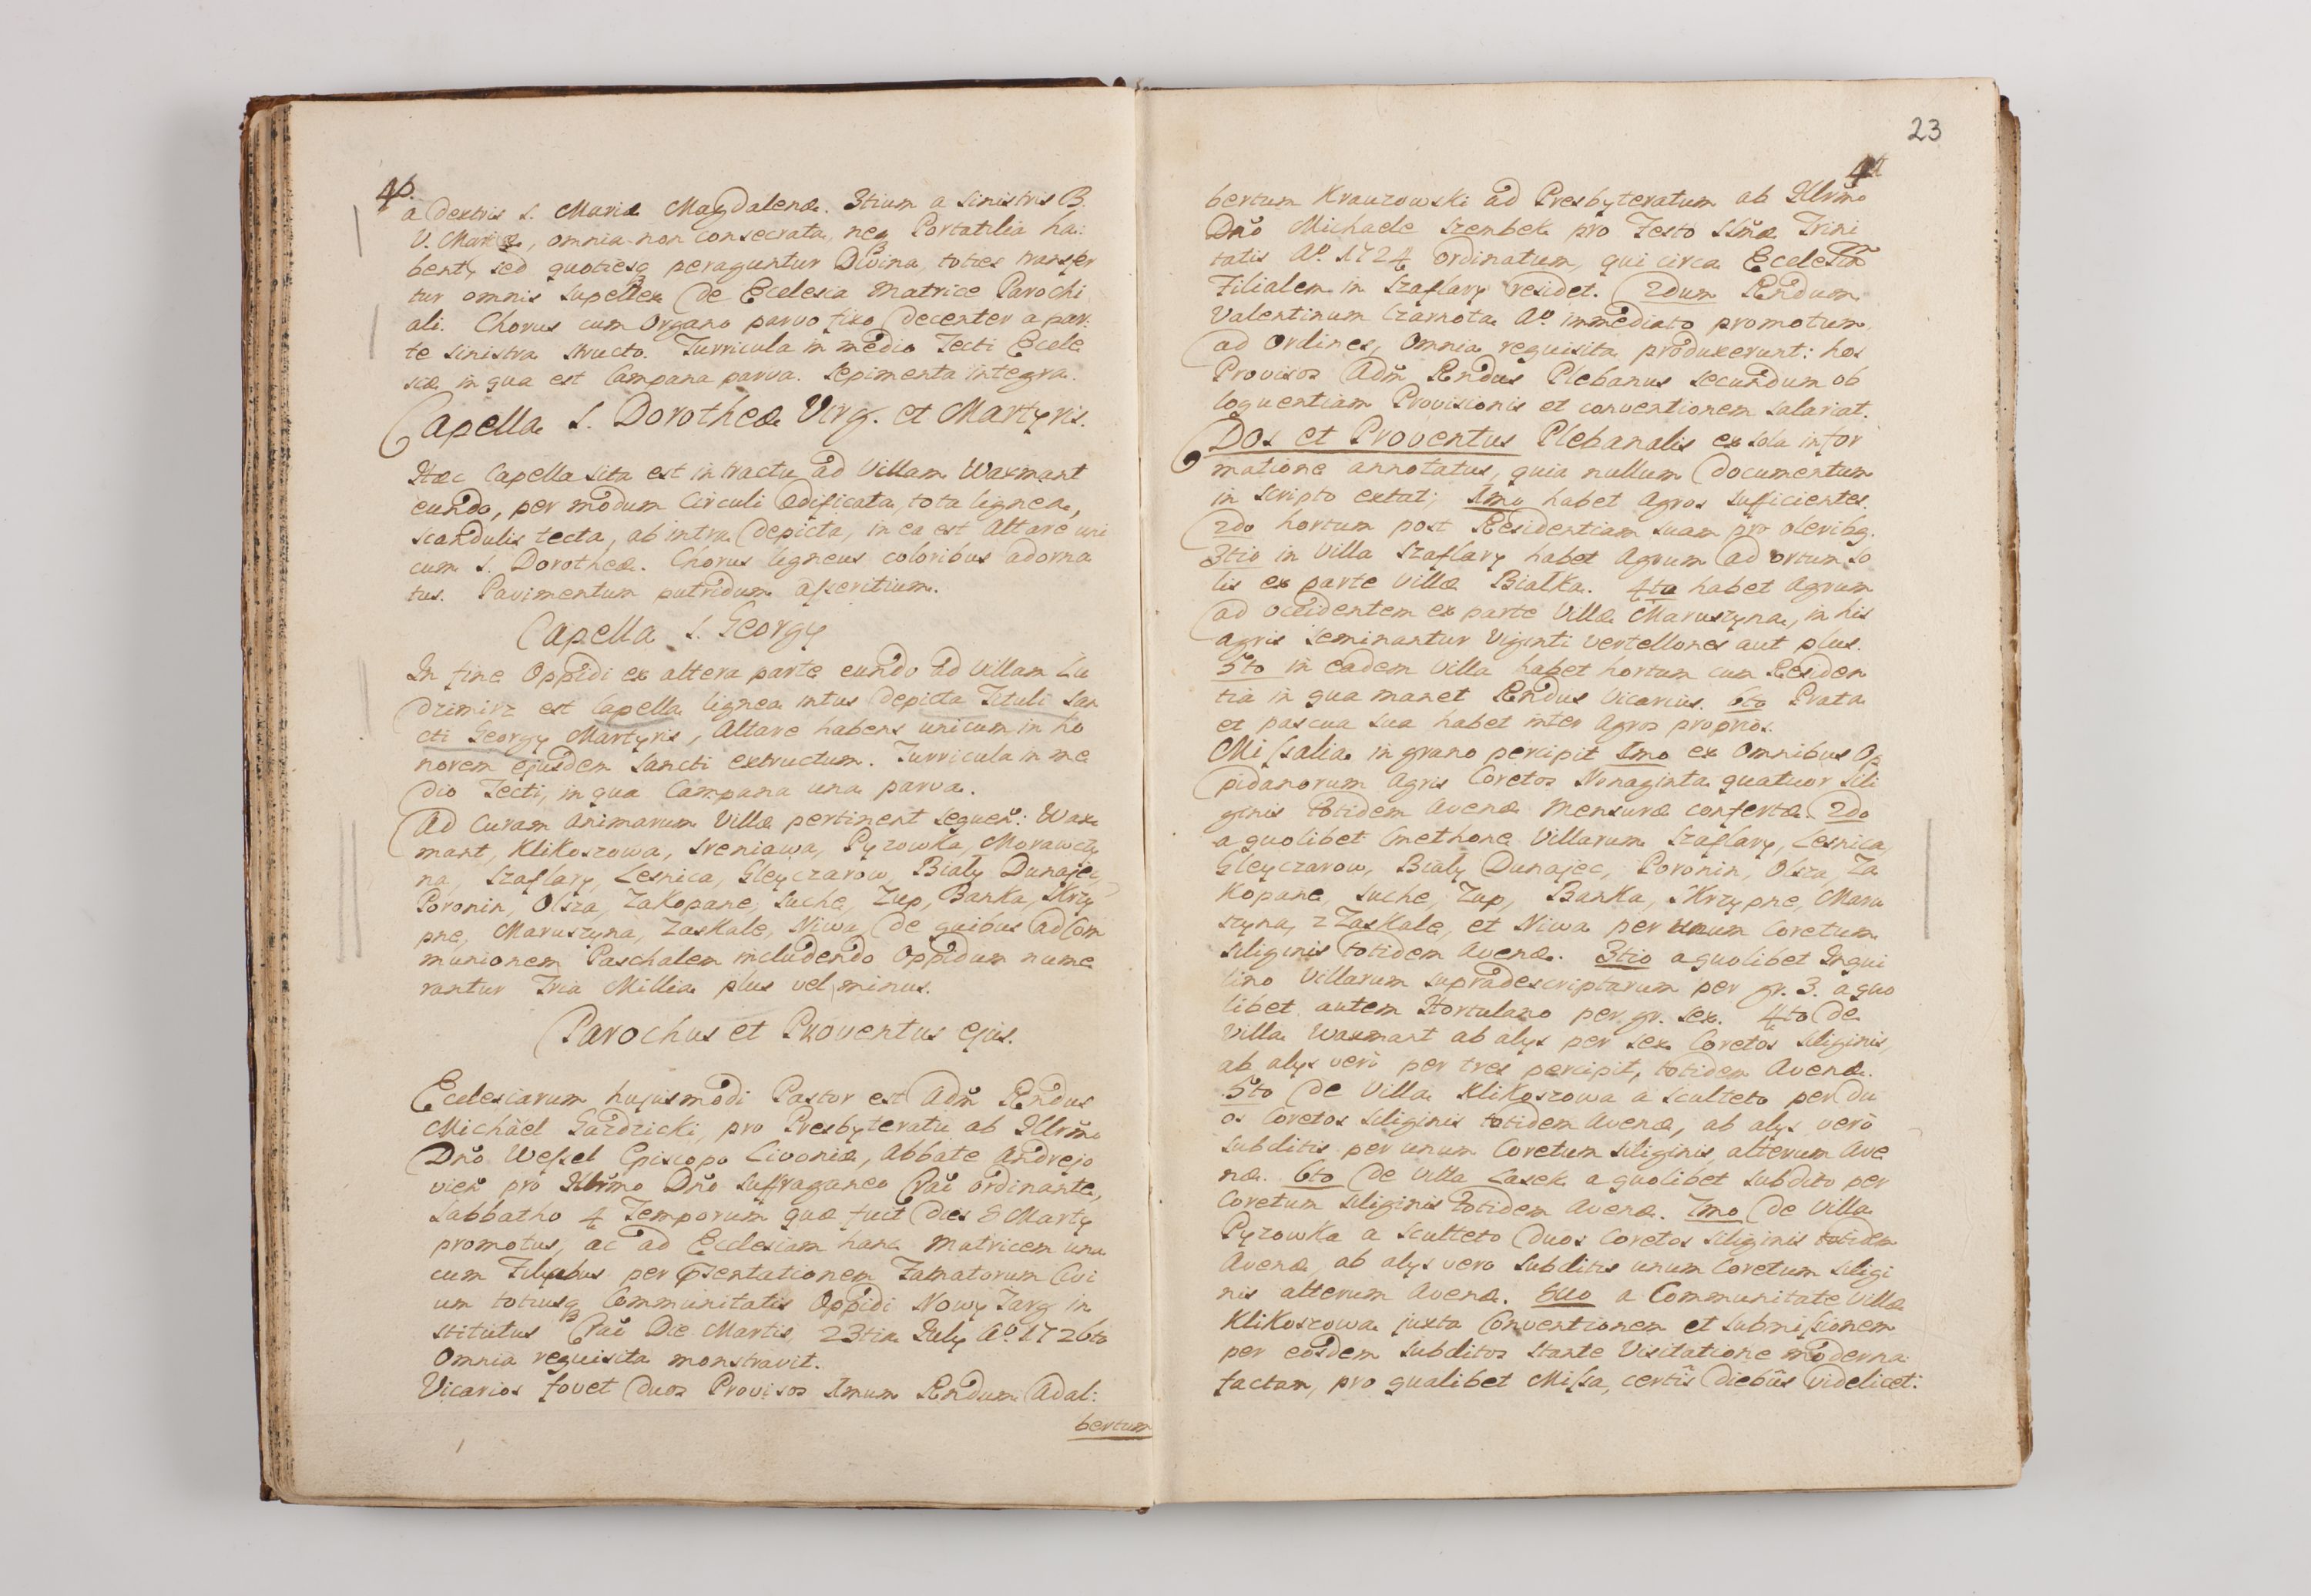 a dextris S. Mariæ Magdalenæ. 3tium a sinistris B.
V. Mariæ, omnia non consecrata, neq Portatilia ha:
bent, sed quotiesq peraguntur Divina, toties transfer
tur omnis supellex de Ecclesia Matrice Parochi
ali. Chorus cum Organo parvo fixo decenter a par:
te sinistra structo. Turricula in medio Tecti Eccle
siæ in qua est Campana parva. Sepimenta integra.
Capella S. Dorotheæ Virg. et Martyris.
Hæc Capella sita est in tractu ad Villam Waxmant
eundo, per modum Circuli ædificata, tota lignea,
scandulis tecta, ab intra depicta, in ea est Altare uni
cum S. Dorotheæ. Chorus ligneus coloribus adorna
tus. Pavimentum putridum asseritium.
Capella S. Georgy
In fine Oppidi ex altera parte eundo ad Villam Lu
dzimirz est Capella lignea intus depicta Tituli San
cti Georgy Martyris, Altare habens unicum in ho
norem ejusdem Sancti extructum. Turricula in me
dio Tecti, in qua Campana una parva.
Ad Curam Animarum Villæ pertinent sequen: Wax
mant, Klikoszowa, Sreniawa, Pyzowka, Morawczy
na, Szaflary, Lesnica, Gleyczarow, Bialy Dunajec,
Poronin, Olsza, Zakopane, Suche, Zup, Banka, Skrzy
pne, Maruszyna, Zaskale, Niwa, de quibus ad Com
munionem Paschalem includendo Oppidum nume
rantur Tria Millia plus vel minus.
Parochus et Proventus ejus.
Ecclesiarum hujusmodi Pastor est Adm Rndus
Michäel Gardzicki, pro Presbyteratu ab Illrmo
Dno Wessel Episcopo Livoniæ, Abbate Andrejo
vien pro Illrmo Dno Suffraganeo Crac ordinante,
Sabbatho 4 Temporum quæ fuit dies 8 Marty
promotus, ac ad Ecclesiam hanc Matricem una
cum Filiabus per præsentationem Famatorum Civi
um totiusq Communitatis Oppidi Nowy Targ in
stitutus Crac Die Martis 23tia July Ao 1726to
Omnia requisita monstravit.
Vicarios fovet duos Provisos 1mum Rndum Adal:
bertum
23
bertum Krauzowski ad Presbyteratum ab Illrmo
Dno Michaele Szembek pro Festo SSmæ Trini
tatis Ao 1724 ordinatum, qui circa Ecclesiam
Filialem in Szaflary residet. 2dum Rndum
Valentinum Czarnota Ao immediato promotum
ad Ordines, Omnia requisita produxerunt: hos
Provisos Adm Rndus Plebanus secundum ob
loquentiam Provisionis et conventionem salariat.
Dos et Proventus Plebanalis ex sola infor
matione annotatus, quia nullum documentum
in scripto extat; 1mo habet Agros sufficientes.
2do hortum post Residentiam suam pro oleribq.
3tio in Villa Szaflary habet Agrum ad ortum so
lis ex parte Villæ Bialka. 4to habet Agrum
ad occidentem ex parte Villæ Maruszyna, in his
Agris seminantur Viginti vertellones aut plus.
5to in eadem Villa habet hortum cum Residen
tia in qua manet Rndus Vicarius. 6to Prata
et pascua sua habet inter Agros proprios.
Missalia in grano percipit 1mo ex Omnibus Op
pidanorum Agris Coretos Nonaginta quatuor Sili
ginis totidem Avenæ Mensuræ confertæ. 2do
a quolibet Cmethone Villarum Szaflary, Lesnica,
Gleyczarow, Bialy Dunajec, Poronin, Olsza, Za
kopane, Suche, Zup, Banka, Skrzypne, Maru
szyna, Zaskale, et Niwa per unum Coretum
Siliginis totidem Avenæ. 3tio a quolibet Inqui
lino Villarum supradescriptarum per gr. 3. a quo
libet autem Hortulano per gr. sex. 4to de
Villa Waxmant ab alys per sex Coretos Siliginis,
ab alys verò per tres percipit, totidem Avenæ.
5to de Villa Klikoszowa a Sculteto per du
os Coretos Siliginis totidem Avenæ, ab alys verò
subditis per unum Coretum Siliginis, alterum Ave
næ. 6to de Villa Lasek a quolibet subdito per
Coretum Siliginis totidem Avenæ. 7mo de Villa
Pyzowka a Sculteto duos Coretos Siliginis totidem
Avenæ, ab alys vero Subditis unum Coretum Siligi
nis alterum Avenæ. 8vo a Communitate Villæ
Klikoszowa juxta Conventionem et submissionem
per eosdem Subditos stante Visitatione moderna
factam, pro qualibet Missa, certis diebus videlicet: